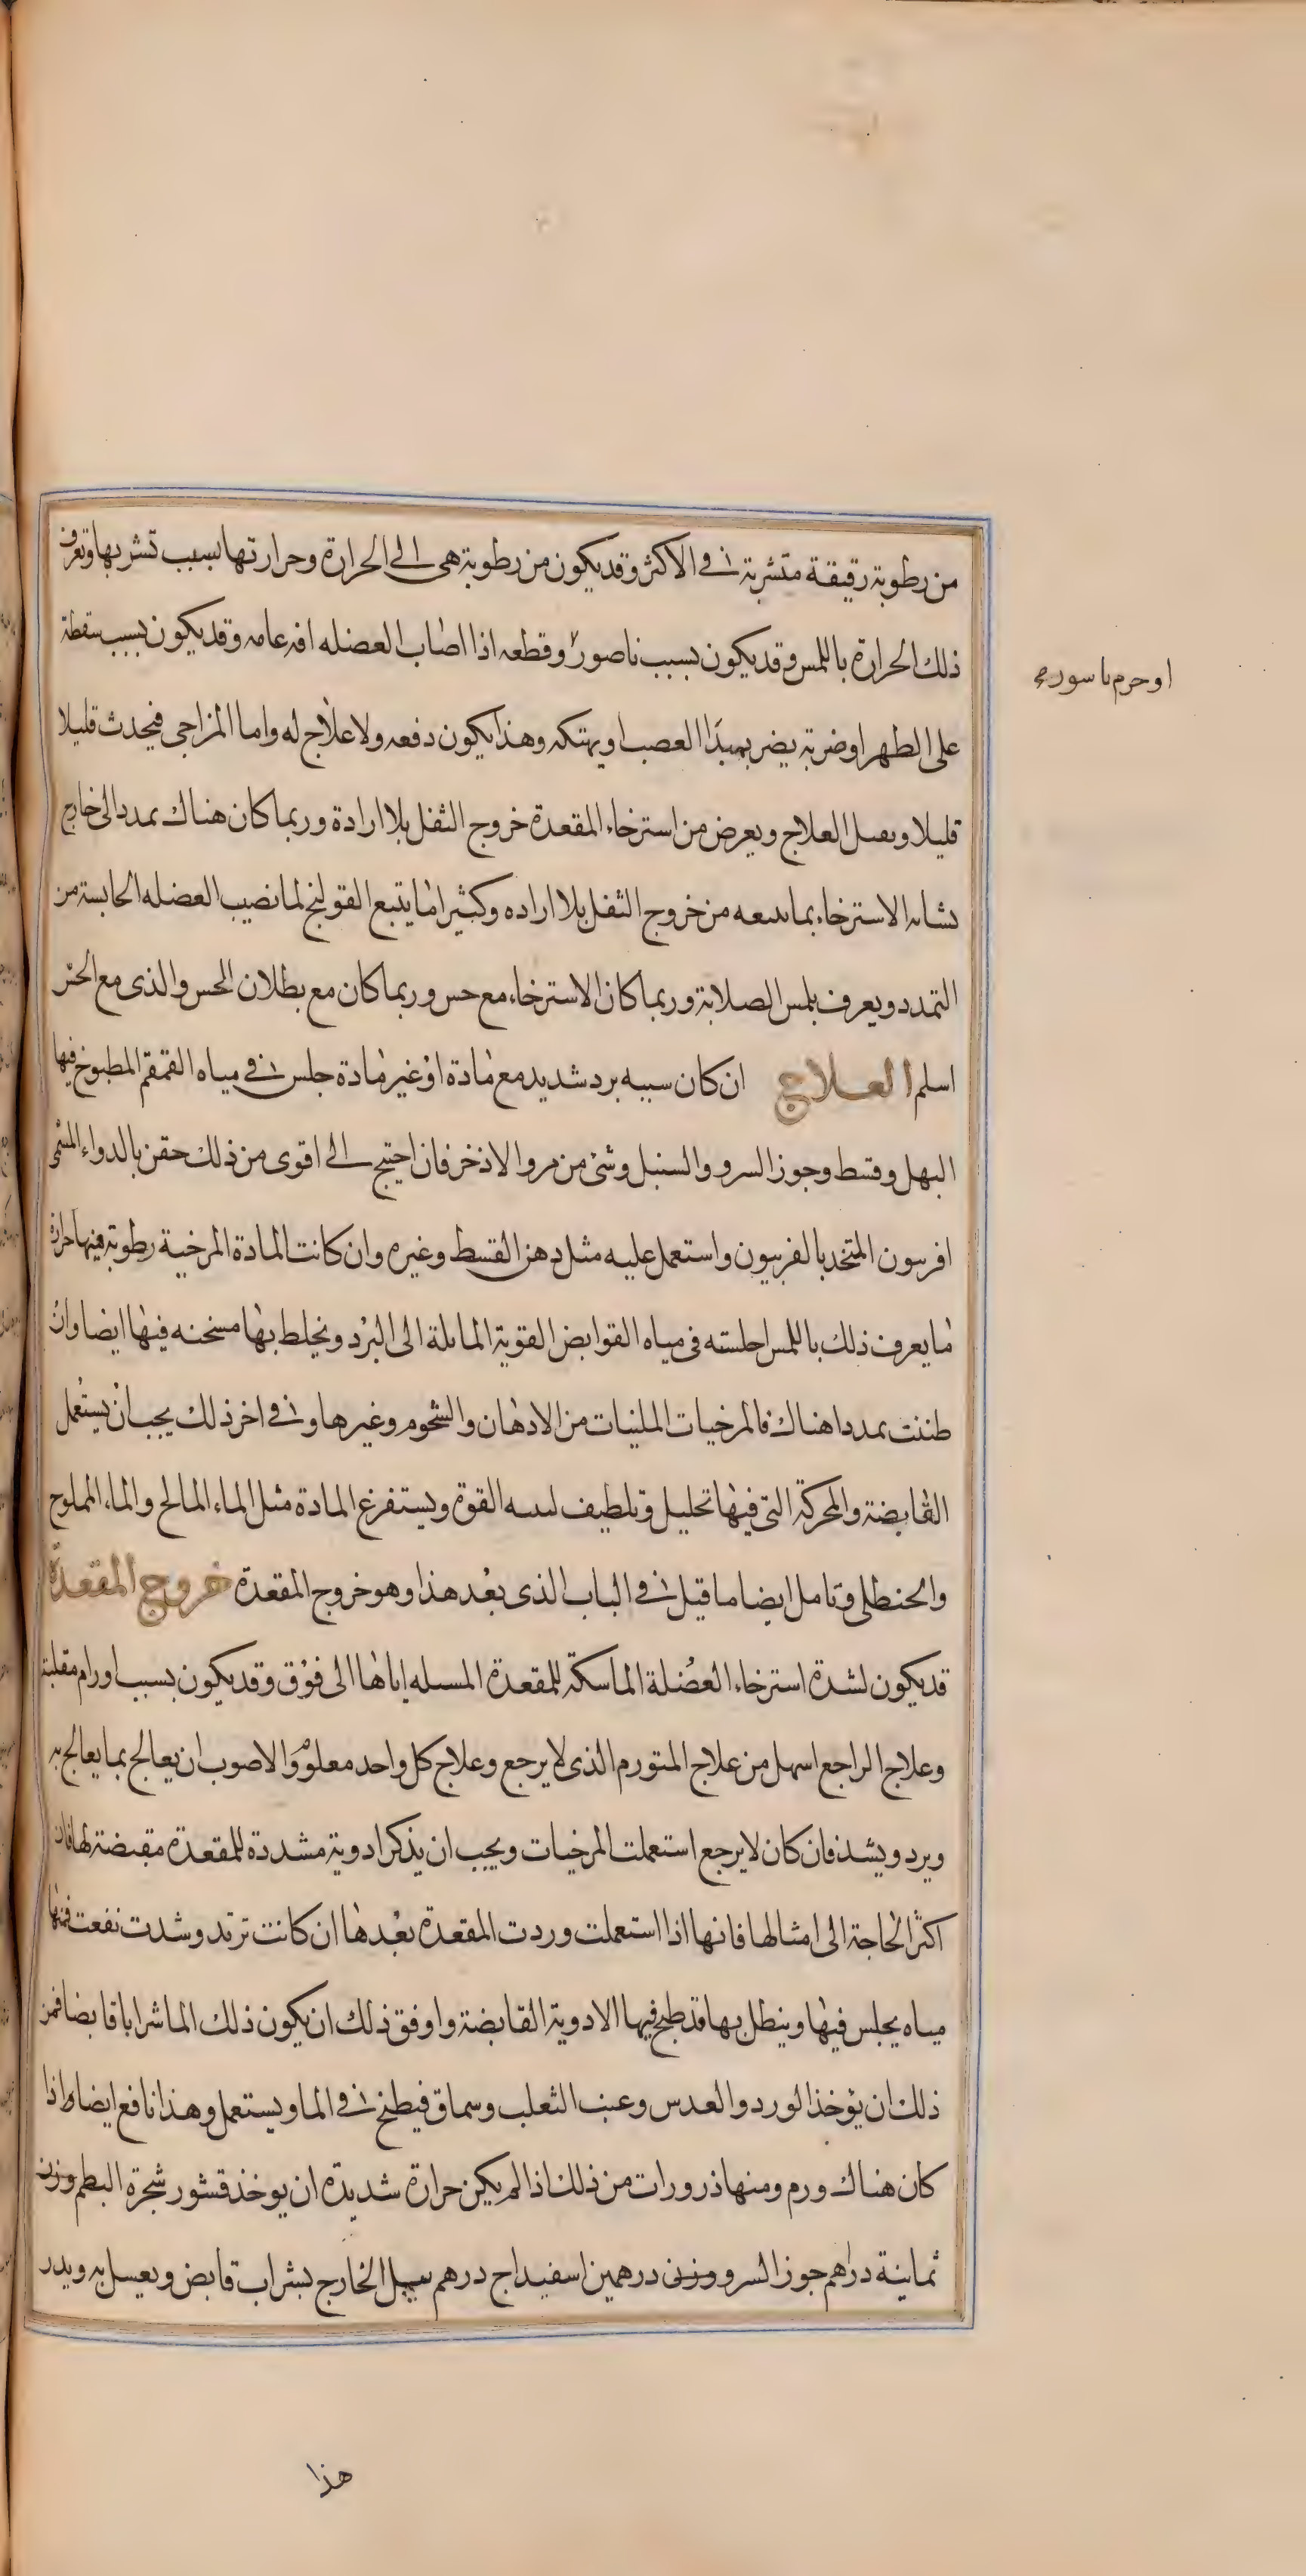 من رطوبة رقيقة متشربة في الاكثر وقد يكون من رطوبة هى الى الحرارة وحرارتها بسبب تشربها وتعرف
ذلك الحرارة باللمس وقد يكون بسبب ناصور وقطعه اذا اصاب العضله افه عامه وقد يكون بسبب سقطة
او حرم باسور صح
على الظهر او ضربة يضر بمبدا العصب او يهتكه وهذا يكون دفعه ولا علاج له واما المزاجى فيحدث قليلا
قليلا ويقبل العلاج ويعرض من استرخاء المقعدة خروج الثفل بلا ارادة وربما كان هناك تمدد الى خارج
يشابه الاسترخاء بما يتبعه من خروج الثفل بلا اراده وكثيرا ما يتبع القولنج لما نصيب العضله الحابسة من
التمدد ويعرف بلمس الصلابة وربما كان الاسترخاء مع حس وربما كان مع بطلان الحس والذى مع الحس
اسلم العلاج ان كان سببه برد شديد مع مادة او غير مادة جلس في مياه القمقم المطبوخ فيها
البهل وقسط وجوز السرو والسنبل وشئ من مر والاذخر فان احتيج الى اقوى من ذلك حقن بالدواء المسمى
افربيون المتخذ بالفربيون واستعمل عليه مثل دهن القسط وغيره وان كانت المادة المرخية رطوبة فيها حرارة
ما يعرف ذلك باللمس اجلسته فى مياه القوابض القوية المائلة الى البرد ويخلط بها مسخنه فيها ايضا وان
ظننت تمددا هناك فالمرخيات الملينات من الادهان والشحوم وغيرها وفي اخر ذلك يجب ان يستعمل
القابضة والمحركة التى فيها تحليل وتلطيف لينبه القوة ويستفرغ المادة مثل الماء المالح والماء المملوح
والحنظلى وتامل ايضا ما قيل في الباب الذى بعد هذا وهو خروج المقعدة خروج المقعدة
قد يكون لشدة استرخاء العضلة الماسكة للمقعدة المشيله اياها الى فوق وقد يكون بسبب اورام مقلبة
وعلاج الراجع اسهل من علاج المتورم الذى لا يرجع وعلاج كل واحد معلوم والاصوب ان يعالج بما يعالج به
ويرد ويشد فان كان لا يرجع استعملت المرخيات ويجب ان يذكر ادوية مشددة للمقعدة مقبضة لها فان
اكثر الحاجة الى امثالها فانها اذا استعملت وردت المقعدة بعدها ان كانت ترتد وشدت نفعت فمنها
مياه يجلس فيها وينطل بها قد طبخ فيها الادوية القابضة واوفق ذلك ان يكون ذلك الما شرابا قابضا فمن
ذلك ان يؤخذ الورد والعدس وعنب الثعلب وسماق فيطبخ في الما ويستعمل وهذا نافع ايضا واذا
كان هناك ورم ومنها ذرورات من ذلك اذا لم يكن حرارة شديدة ان يوخذ قشور شجرة البطم وزن
ثمانية دراهم جوز السرو وزن درهمين اسفيداج درهم يبل الخارج بشراب قابض ويغسل به ويذر
هذا